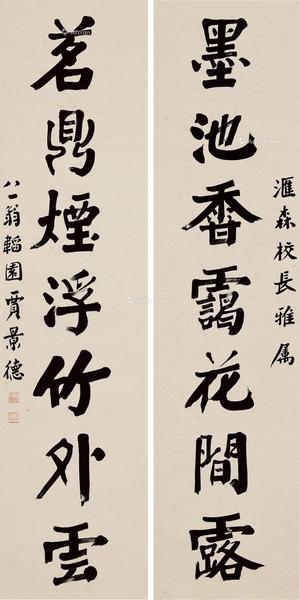 滙森校長雅属
墨池香靄花間露
茗鼎煙浮竹外雲
八一翁韜園賈景德